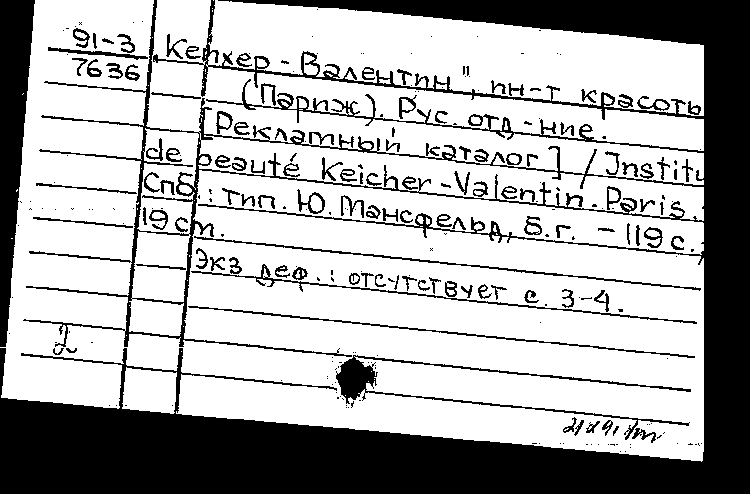 91-3
7636
„Кейхер-Валентин", ин-т красоты
(Париж). Рус. отд-ние.
[Рекламный каталог] / Institu
de beauté Keicher-Valentin. Paris.
Спб.: тип. Ю. Мансфельд, б.г. – 119 с.;
19 cm.
Экз деф.: отсутствует с. 3-4.
2